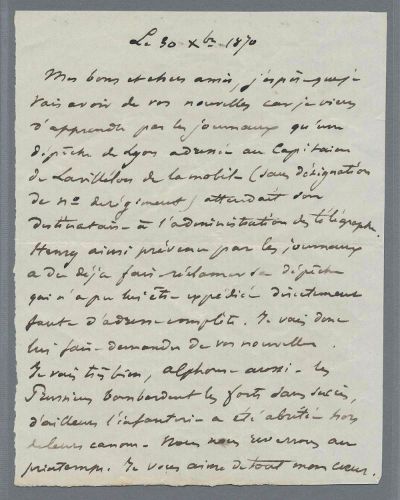 Le 30 Xbre 1870
Mes bons et chers amis, j'espère que je
vais avoir de vos nouvelles car je viens
d'apprendre par les journaux qu'une
dépêche de Lyon adressée au Capitaine
de Lavillelón de la mobile (sans désignation
de no de régiment) attendait son
destinataire à l'administration des télégraphes.
Henry ainsi prévenu par les journaux
a dû déjà faire réclamer sa dépêche
qui n'a pu lui être expédiée directement
faute d'adresse complète. Je vais donc
lui faire demander de vos nouvelles.
Je vais très bien, Alphonse aussi - les
Prussiens bombardent les forts sans succès,
d'ailleurs l'infanterie a été abritée hors
de leurs canons - Nous nous reverrons au
printemps. Je vous aime de tout mon cœur.